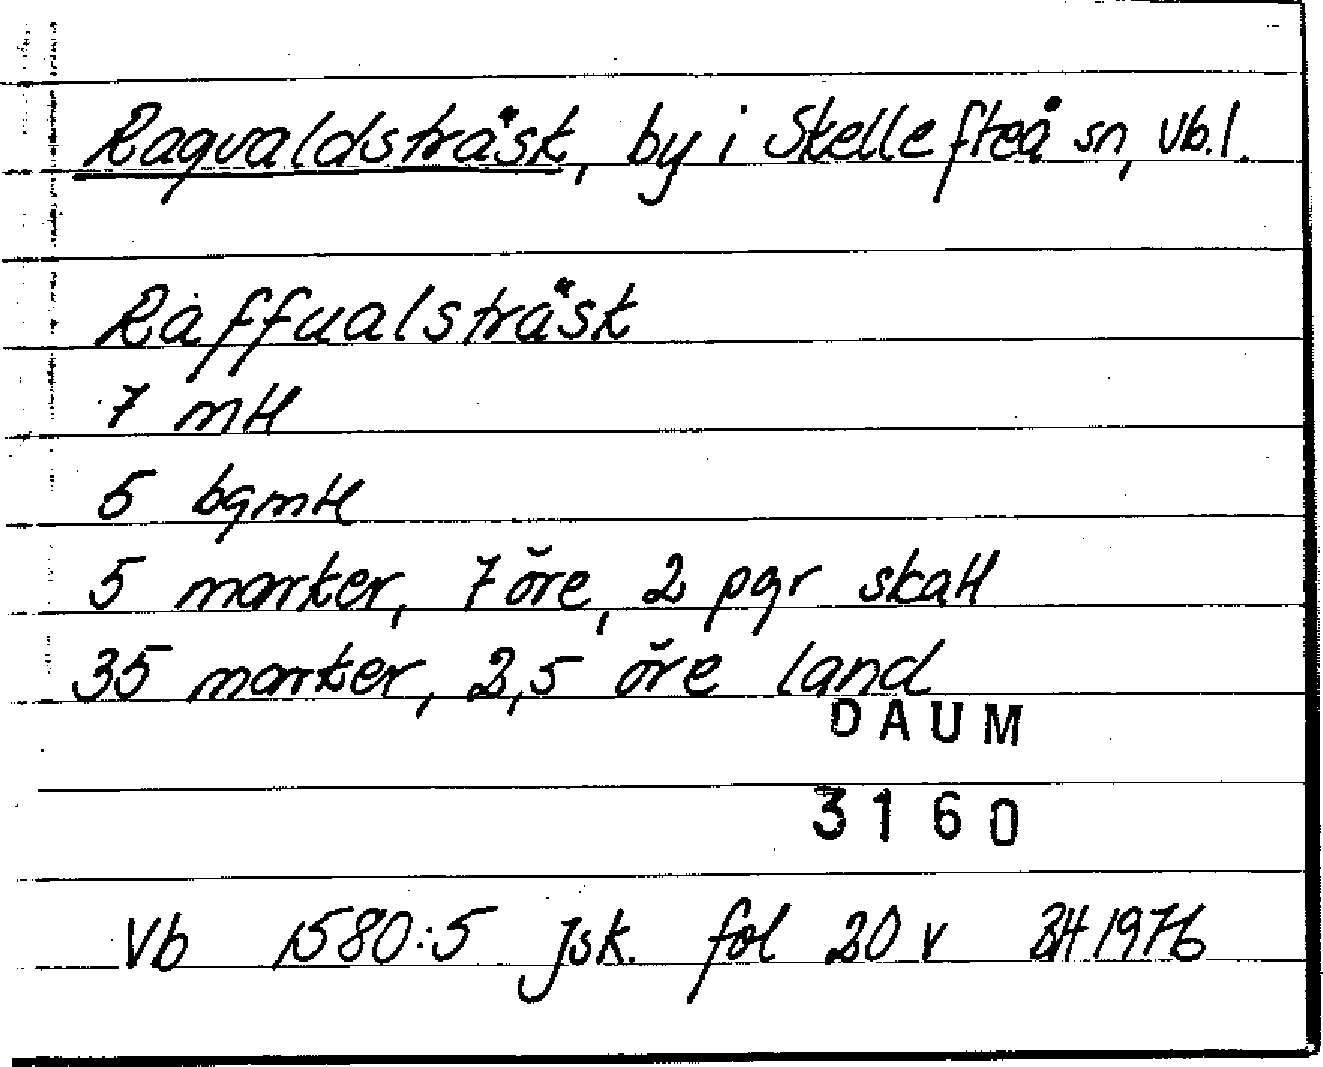 Ragvaldsträsk, by i Skellefteå sn, Vb.l.
Raffualsträsk
7 mtl
5 bgmtl
5 marker, 7 öre, 2 pgr skatt
35 marker, 2,5 öre land
DAUM
3160
Vb 1580:5 Jsk. fol 20 v BH 1976